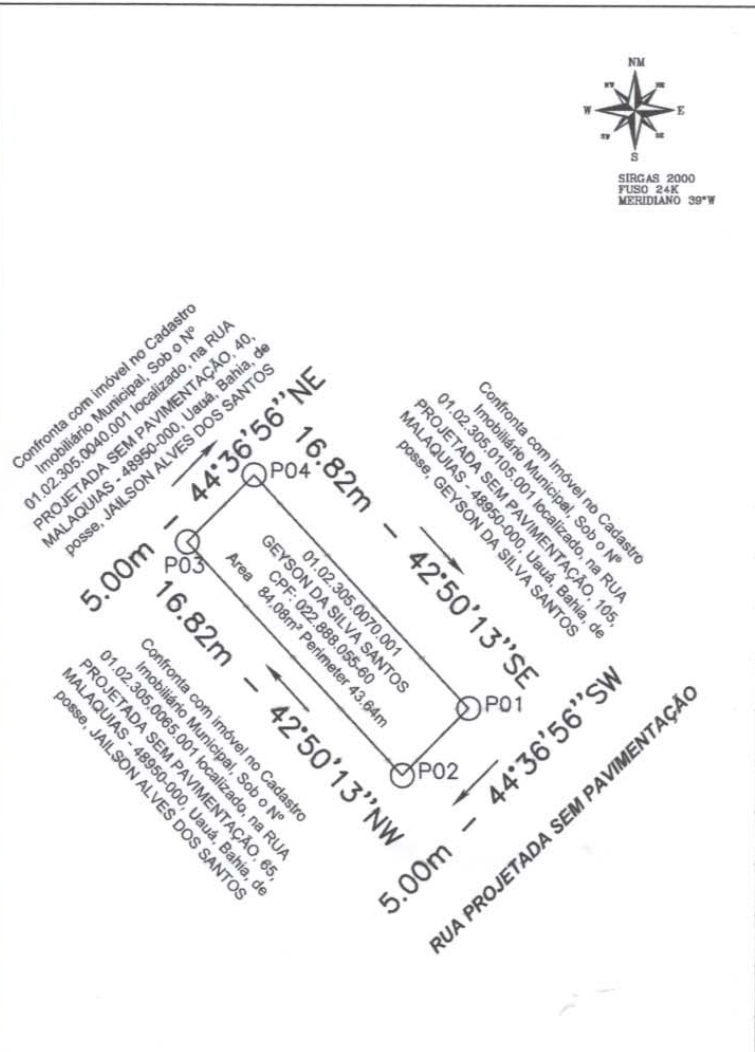 NM
NW
NE
W
E
SW
SE
S
SIRGAS 2000
FUSO 24K
MERIDIANO 39°W
Confronta com imóvel no Cadastro
Imobiliário Municipal, Sob o Nº
01.02.305.0040.001 localizado, na RUA
PROJETADA SEM PAVIMENTAÇÃO, 40,
MALAQUIAS - 48950-000, Uauá, Bahia, de
posse, JAILSON ALVES DOS SANTOS
5.00m - 44°36'56''NE
P04
P03
16.82m - 42°50'13''SE
Confronta com imóvel no Cadastro
Imobiliário Municipal, Sob o Nº
01.02.305.0105.001 localizado, na RUA
PROJETADA SEM PAVIMENTAÇÃO, 105,
MALAQUIAS - 48950-000, Uauá, Bahia, de
posse, GEYSON DA SILVA SANTOS
01.02.305.0070.001
GEYSON DA SILVA SANTOS
CPF: 022.888.055-60
Area 84,08m² Perimeter 43.64m
16.82m - 42°50'13''NW
Confronta com imóvel no Cadastro
Imobiliário Municipal, Sob o Nº
01.02.305.0065.001 localizado, na RUA
PROJETADA SEM PAVIMENTAÇÃO, 65,
MALAQUIAS - 48950-000, Uauá, Bahia, de
posse, JAILSON ALVES DOS SANTOS
P01
P02
5.00m - 44°36'56''SW
RUA PROJETADA SEM PAVIMENTAÇÃO